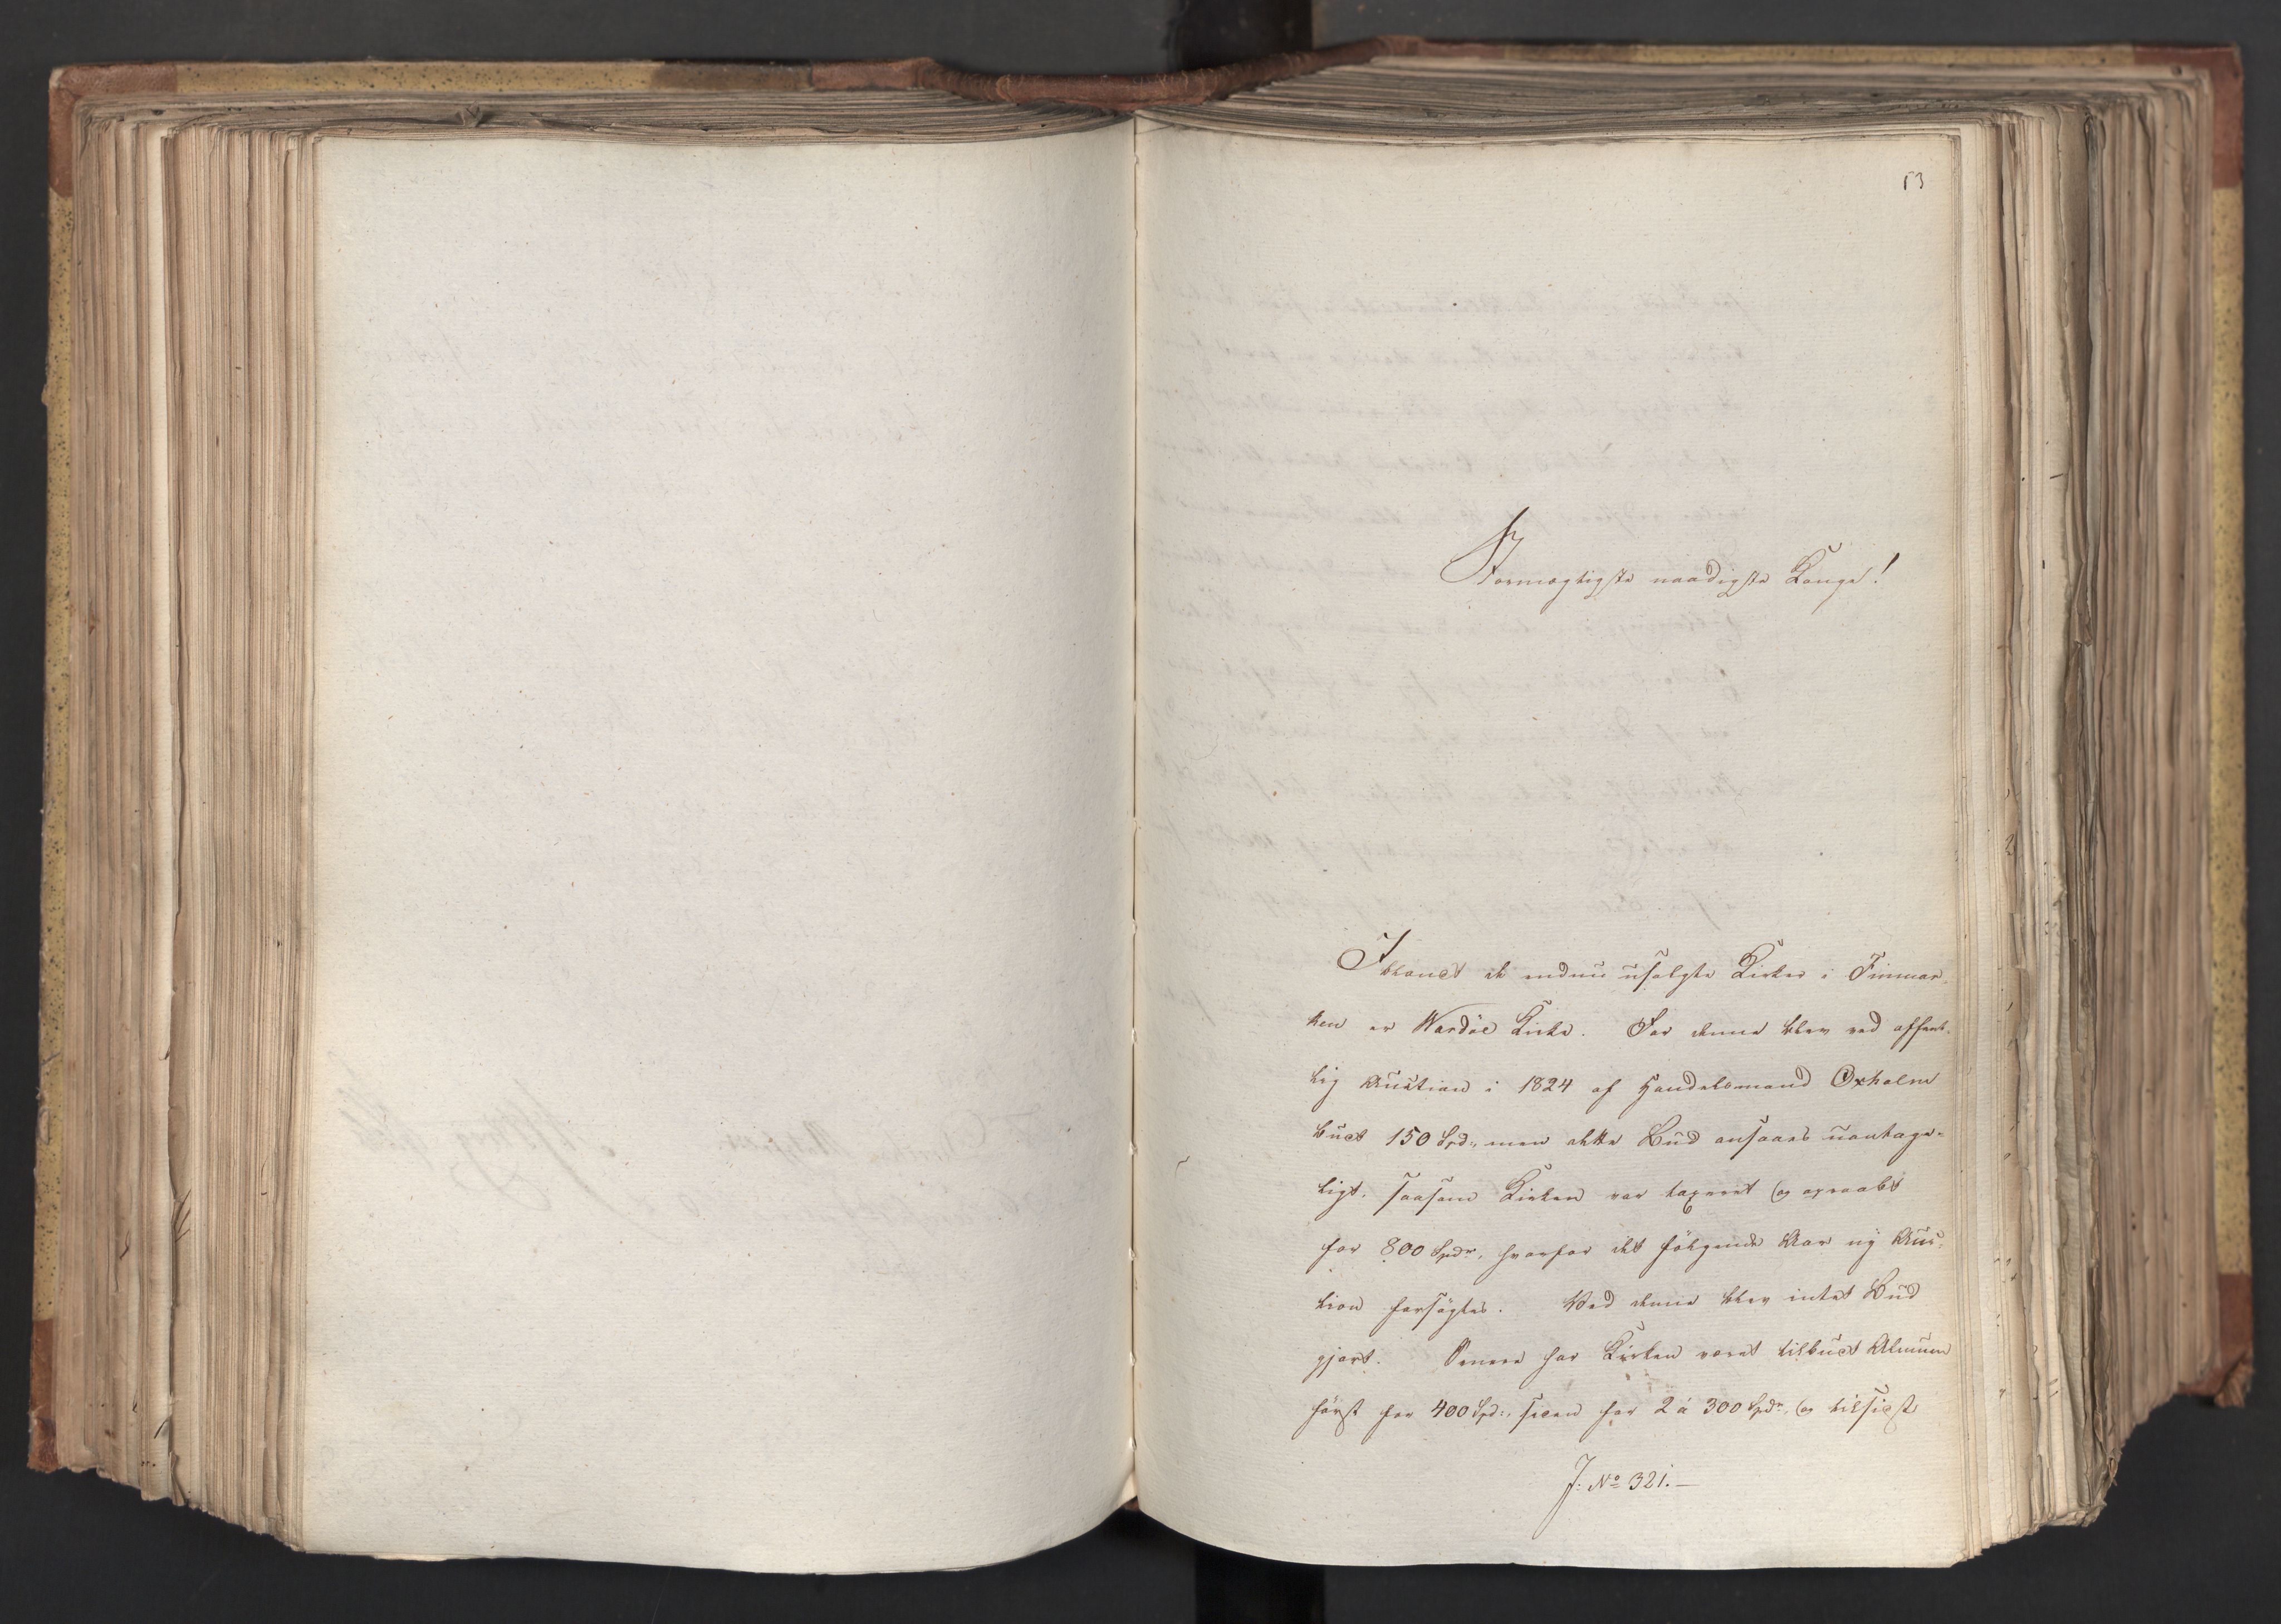 53
Stormægtigste naadigste Konge!
Iblandt de endnu usolgte Kirker i Finmar-
ken er Wardöe Kirke. For denne blev ved offent-
lig Auction i 1824 af Handelsmand Oxholm
budt 150 Spd:, men dette Bud ansaaes uantage-
ligt, saasom Kirken var taxeret og opraabt
for 800 Spdr, hvorfor det fölgende Aar ny Auc-
tion forsögtes. Ved denne blev intet Bud
gjort. Senere har Kirken været tilbudt Almuen
först for 400 Spd:, siden for 2 à 300 Spdr, og tilsidst
J: No 321.—